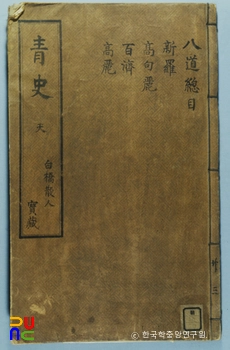 八道總目
新羅
高句麗
百濟
高麗
青史
天
白橋散人
寶藏
共三
ⓒ한국학중앙연구원